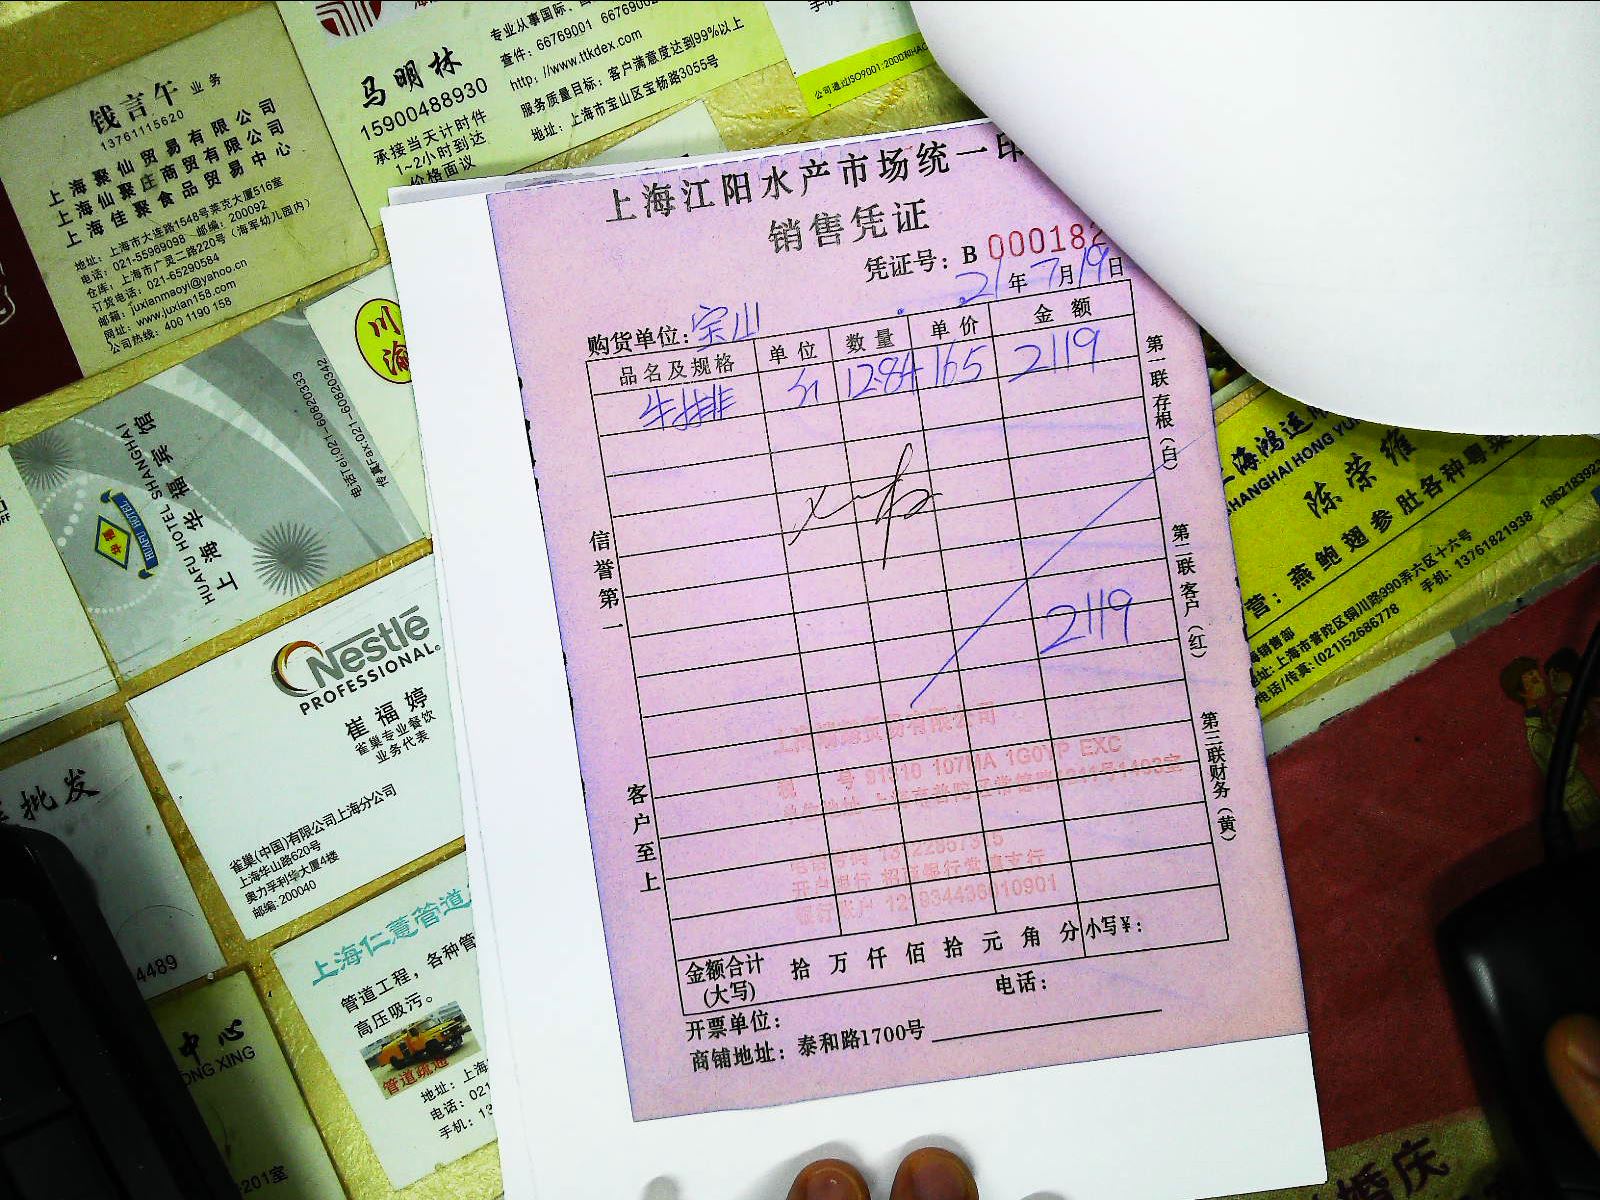 上海江阳水产市场统一印
销售凭证
凭证号: B 000182
21年7月19日
购货单位: 宝山
品名及规格 单位 数量 单价 金额
牛排 斤 12.84 165 2119
2119
信誉第一
客户至上
第一联存根(白)
第二联客户(红)
第三联财务(黄)
金额合计(大写) 拾 万 仟 佰 拾 元 角 分 小写¥:
开票单位: 电话:
商铺地址: 泰和路1700号
税 号 91310 107MA 1G0YP EXC
钱言午 业务
13761115620
上海聚仙贸易有限公司
上海仙聚庄商贸有限公司
上海佳聚食品贸易中心
地址: 上海市大连路1548号莱克大厦516室
电话: 021-55969098 邮编: 200092
仓库: 上海市广灵二路220号 (海军幼儿园内)
订货电话: 021-65290584
邮箱: juxianmaoyi@yahoo.cn
网址: www.juxian158.com
公司热线: 400 1190 158
马明林
15900488930
承接当天计时件
1~2小时到达
价格面议
查件: 66769001
http://www.ttkdex.com
服务质量目标: 客户满意度达到99%以上
地址: 上海市宝山区宝杨路3055号
川渝
上海华福宾馆
HUAFU HOTEL SHANGHAI
电话Tel:021-60820333
传真Fax:021-60820342
Nestlé
PROFESSIONAL.
崔福婷
雀巢专业餐饮
业务代表
雀巢(中国)有限公司上海分公司
上海华山路620号
奥力孚利华大厦4楼
邮编: 200040
批发
4489
中心
ONG XING
201室
上海仁薏管道
管道工程, 各种管
高压吸污。
管道疏通
地址: 上海
电话: 021
手机: 13
上海鸿运
SHANGHAI HONG YU
陈荣维
营: 燕鲍翅参肚各种粤菜
地址: 上海市普陀区铜川路990弄六区十六号
电话/传真: (021)52686778 手机: 13761821938
婚庆